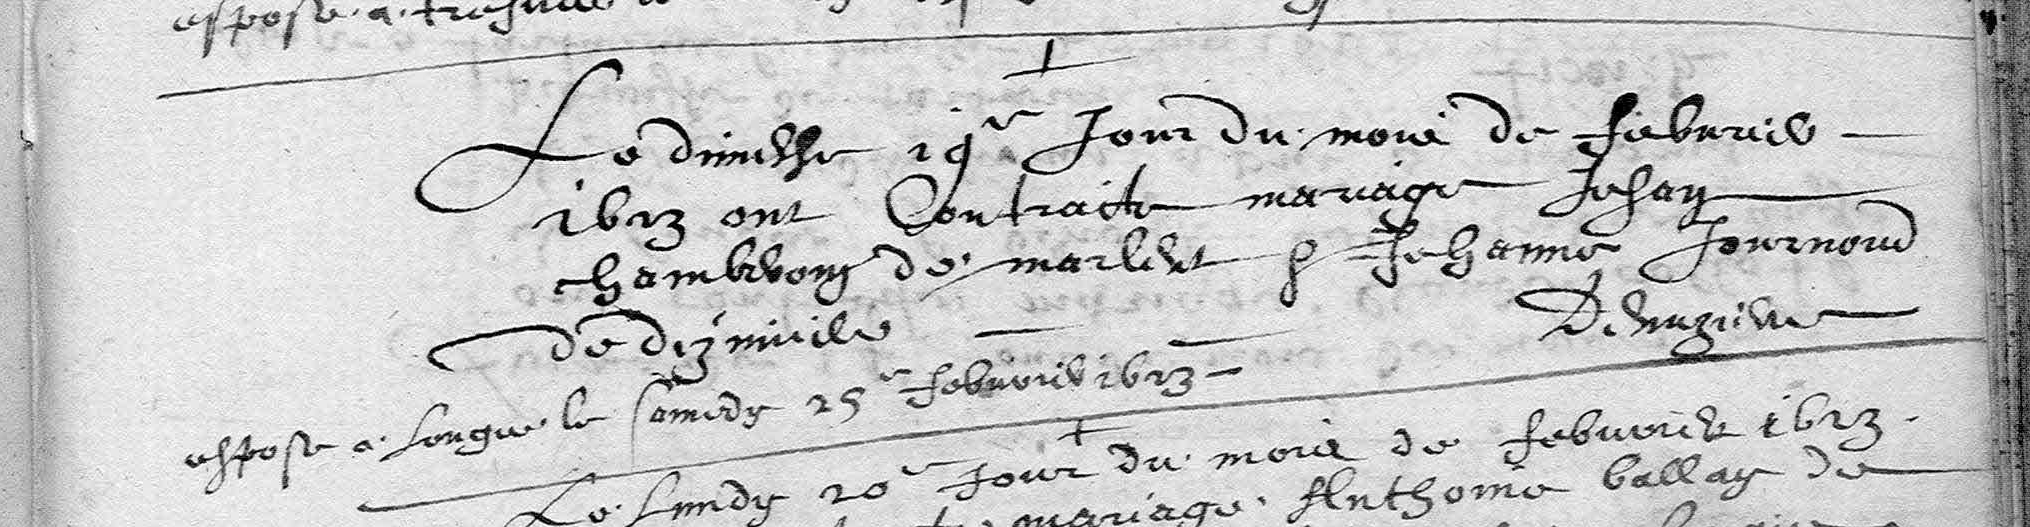 espose a
Le dimenche 19e Jour du mois de febvrier
1623 ont Contracte mariage Jehan
chambvon de marlert & Jehanne Journoud
de dizimieile
espose a Longue le samedy 25e febvrier 1623
Le Lundy 20e Jour du mois de febvrier 1623.
mariage Anthoine ballay de